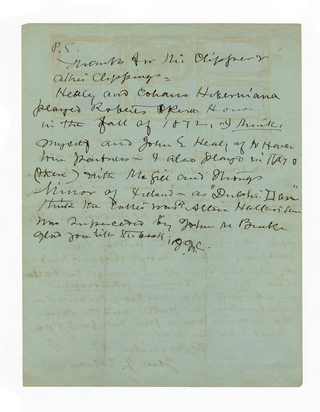 P.S.
Thanks for the Clipper &
other Clippings =
Healy and Cohans Hiberniana
played Roberts Opera House
in the fall of 1872, I think,
myself and John E Healy of N Haven
were partners = I also played in
there) with McGill and Strongs
Mirror of Ireland = as "Dublin Dan"
think the latter was after
was superceded by John M Burke
glad you like the book. JJC.